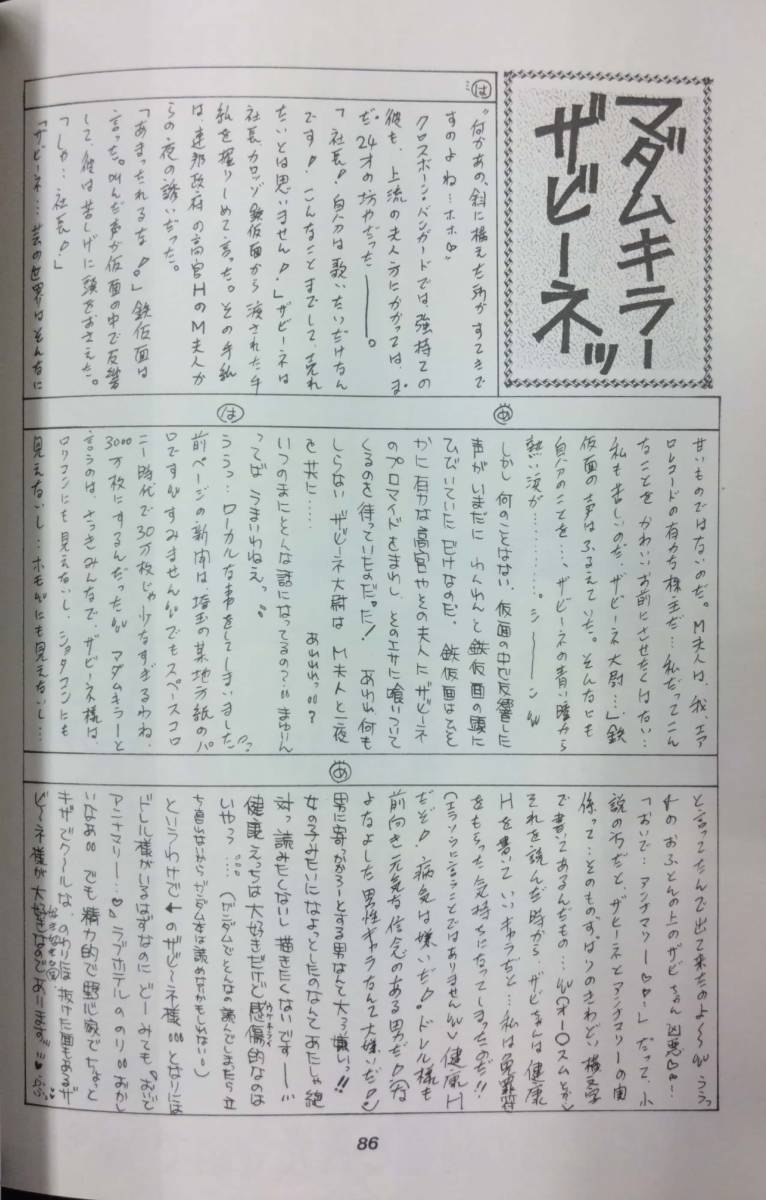 マダムキラー
ザビーネッ
は
"何かあの、斜に構えた所がすてきで
すのよね…ホホ♡"
クロスボーン・バンガードでは、強持ての
彼も、上流の夫人方にかかっては、ま
だ24才の坊やだった――。
「社長!自分は歌いたいだけなん
です!こんなことまでして、売れ
たいとは思いません!」ザビーネは
社長カロッゾ鉄仮面から渡された手
紙を握りしめて言った。その手紙
は、連邦政府の高官HのM夫人か
らの夜の誘いだった。
「あまったれるな!」鉄仮面は
言った。叫んだ声が仮面の中で反響
して、彼は苦しげに頭をおさえた。
「しか…社長!」
「ザビーネ…芸の世界はそんなに
あ
甘いものではないのだ。M夫人は、我、エア
ロレコードの有力な株主だ…私だってこん
なことをかわいいお前にさせたくはない…
私も苦しいのだ、ザビーネ大尉…」鉄
仮面の声はふるえていた。そんなにも
自分のことを…、ザビーネの青い瞳から
熱い涙が………。シーーン
しかし何のことはない、仮面の中で反響した
声がいまだにわんわんと鉄仮面の頭に
ひびいていただけなのだ。鉄仮面はひそ
かに有力な高官やその夫人にザビーネ
のプロマイドをまわし、そのエサに喰いついて
くるのを待っていたのだった!あわれ何も
しらないザビーネ大尉はM夫人と一夜
を共に……あれれっ?
は
いつのまにこんな話になってるの?まゅりん
ってばうまいわねぇっ
ううっ…ローカルな事をしてしまいました
前ページの新聞は、埼玉の某地方紙のパ
ロですすみませんでもスペースコロ
ニー時代で30万枚じゃ少なすぎるわね、
3000万枚にするんだったマダムキラーと
言うのは、さっきみんなで、ザビーネ様は、
ロリコンにも見えないし、ショタコンにも
見えないし…ホモにも見えないし…
あ
と言ってたんで出て来たのよ~ううっ
のおふとんの上のザビちゃん凶悪♡…
「おいで…アンナマリー♡」だって、小
説の方だと、ザビーネとアンナマリーの関
係って…そのものずばりのきわどい描写
で書いてあるんだもの…
それを読んだ時から、ザビちゃんは健康
Hを書いていいキャラだと…私は免罪符
をもらった気持ちになってしまったのだ!!
(エラソウに言うことではありません)健康H
だぞ!病気は嫌いだ!ドレル様も
前向き元気な信念のある男だ!(な
よなよした男性キャラなんて大嫌いだ!)
男に寄っかかろーとする男なんて大っ嫌いっ!!
女の子みたいになよっとしたのなんてあたしゃ絶
対っ読みたくないし描きたくないですー
健康えっちは大好きだけど感傷的なのは
いやっ…(ガンダムでそんなの読んでしまったら立
ち直れないからガンダム本は読めないかもしれない)
というわけで←のザビーネ様となりには
ドレル様がいるはずなのにどーみても、「おいで
アンナマリー…♡」ラブホテルののりおかし
いなあでも精力的で野心家でちょっと
キザでクールな、のわりには抜けた面もあるザ
ビーネ様が大好きなのであります♡